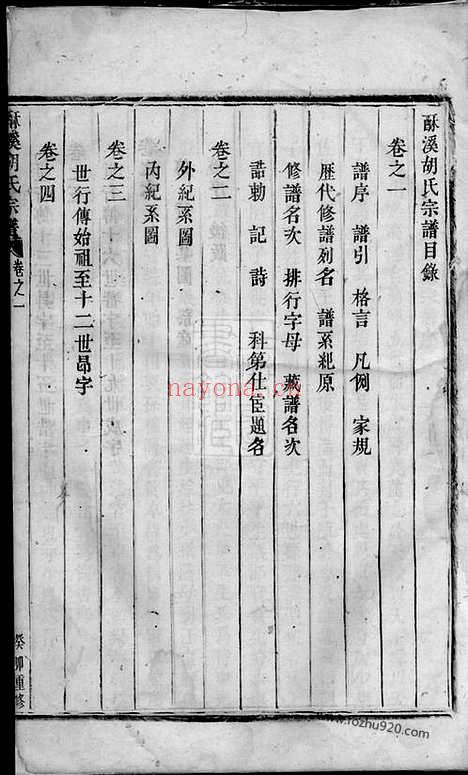 酥溪胡氏宗譜目錄
卷之一
譜序 譜引 格言 凡例 家規
歷代修譜列名 譜系紀原
修譜名次 排行字母 藏譜名次
誥勅 記 詩 科第仕臣題名
卷之二
外紀系圖
內紀系圖
卷之三
世行傳始祖至十二世昂字
卷之四
酥溪胡氏宗譜
卷之一
癸卯重修
nayona.cn
www.rozhu920.com